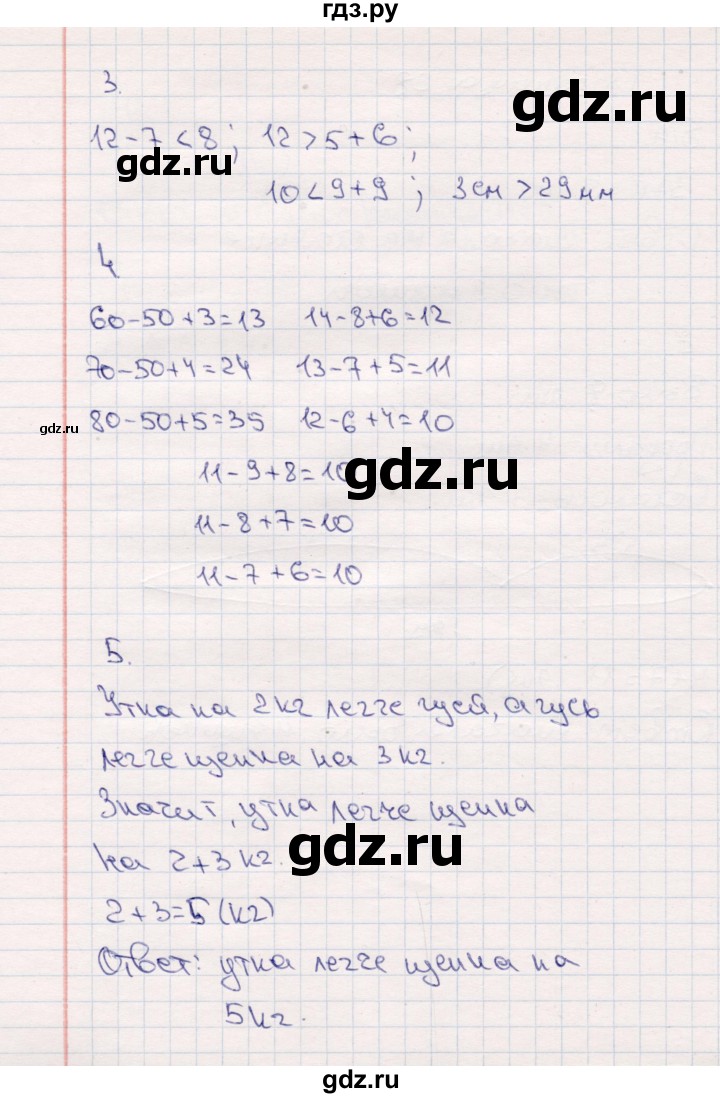 гдз.ру
3.
12-7<8; 12>5+6;
10<9+9; 3см>29мм
4
60-50+3=13 14-8+6=12
70-50+4=24 13-7+5=11
80-50+5=35 12-6+4=10
11-9+8=10
11-8+7=10
11-7+6=10
5.
Утка на 2кг легче гуся, а гусь
легче щенка на 3кг.
Значит, утка легче щенка
на 2+3кг.
2+3=5(кг)
Ответ: утка легче щенка на
5кг.
gdz.ru
gdz.ru
gdz.ru
gdz.ru
gdz.ru
gdz.ru